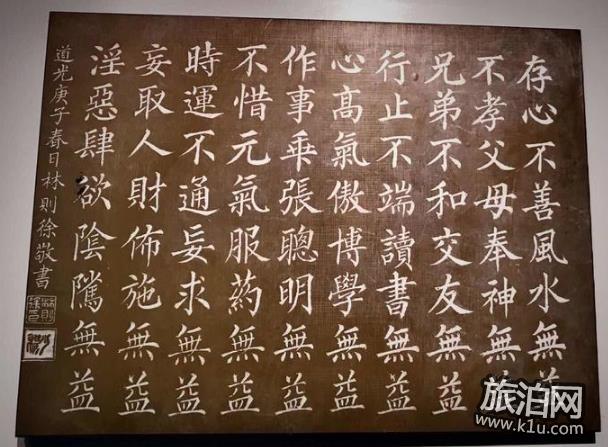 存心不善風水無益
不孝父母奉神無益
兄弟不和交友無益
行止不端讀書無益
心高氣傲博學無益
作事乖張聰明無益
不惜元氣服药無益
時運不通妄求無益
妄取人財佈施無益
淫惡肆欲陰騭無益
道光庚子春日林則徐敬書
旅泊网
www.k1u.com